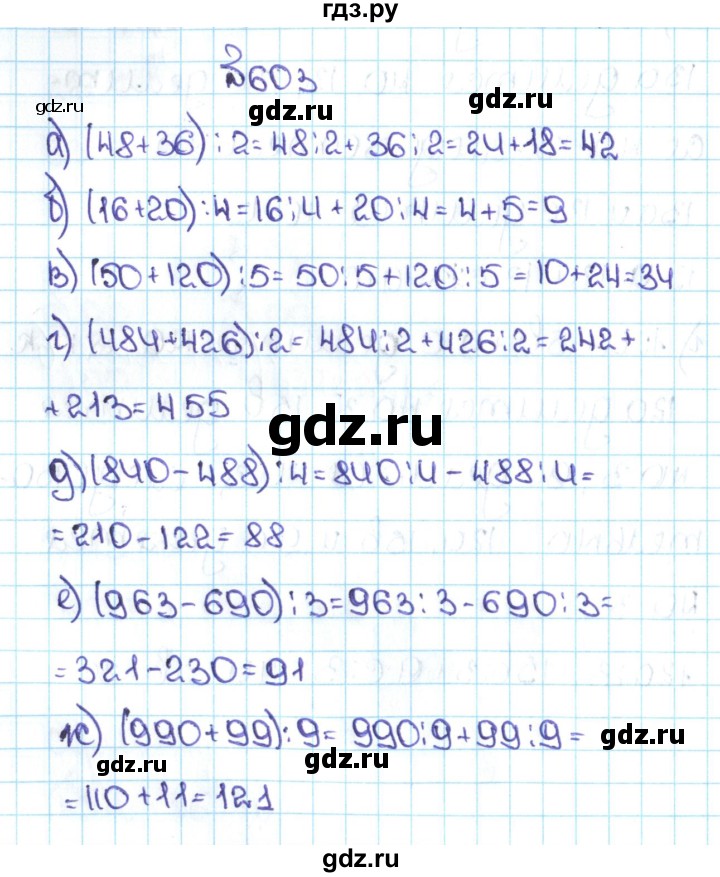 гдз.ру
№603
gdz.ru
gdz.ru
gdz.ru
а) (48+36):2=48:2+36:2=24+18=42
б) (16+20):4=16:4+20:4=4+5=9
в) (50+120):5=50:5+120:5=10+24=34
г) (484+426):2=484:2+426:2=242+
+213=455
gdz.ru
д) (840-488):4=840:4-488:4=
=210-122=88
е) (963-690):3=963:3-690:3=
=321-230=91
ж) (990+99):9=990:9+99:9=
gdz.ru
gdz.ru
gdz.ru
=110+11=121
gdz.ru